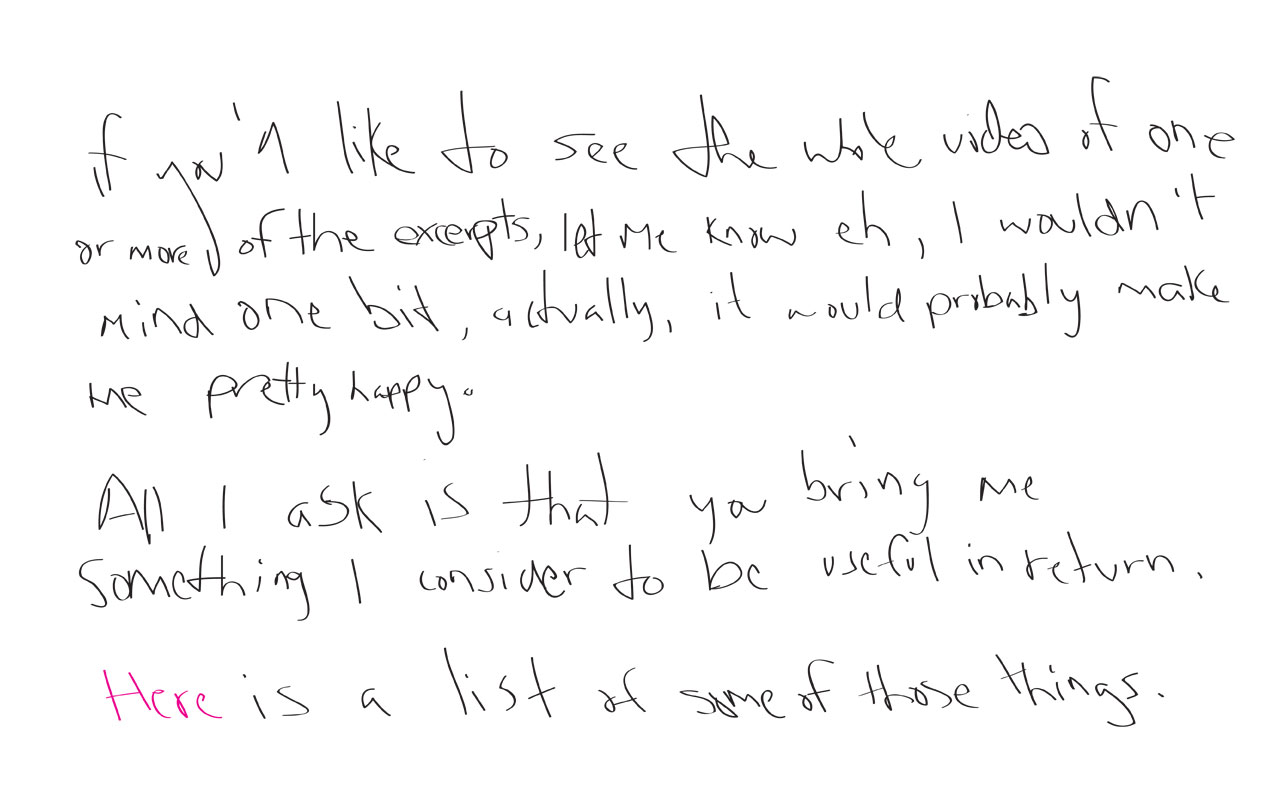 if you'd like to see the whole video of one
or more of the excerpts, let me know eh, I wouldn't
mind one bit, actually, it would probably make
me pretty happy.
All I ask is that you bring me
something I consider to be useful in return.
Here is a list of some of those things.